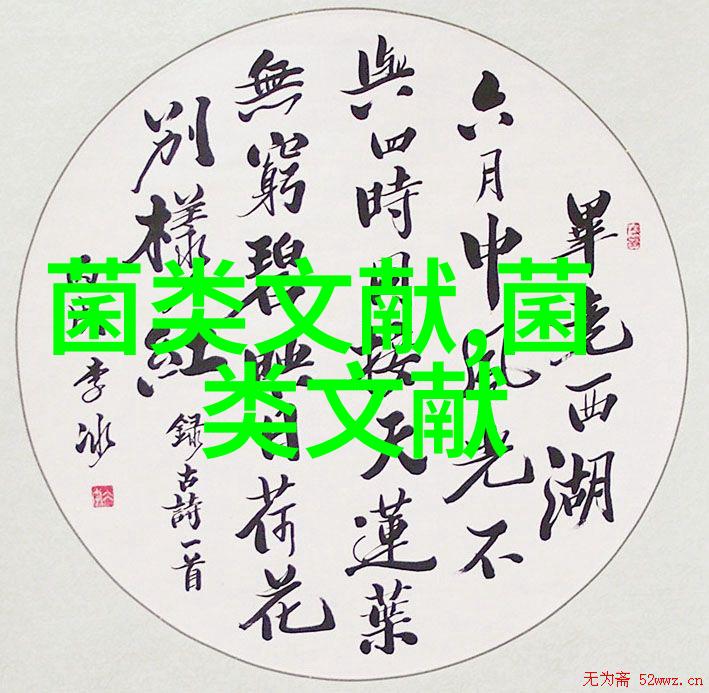 畢竟西湖
六月中風光不
與四時同接天蓮葉
無窮碧映日荷花
別樣紅
錄古詩一首
李冰
菌类文献,菌
类文献
无为斋 52wwz.cn